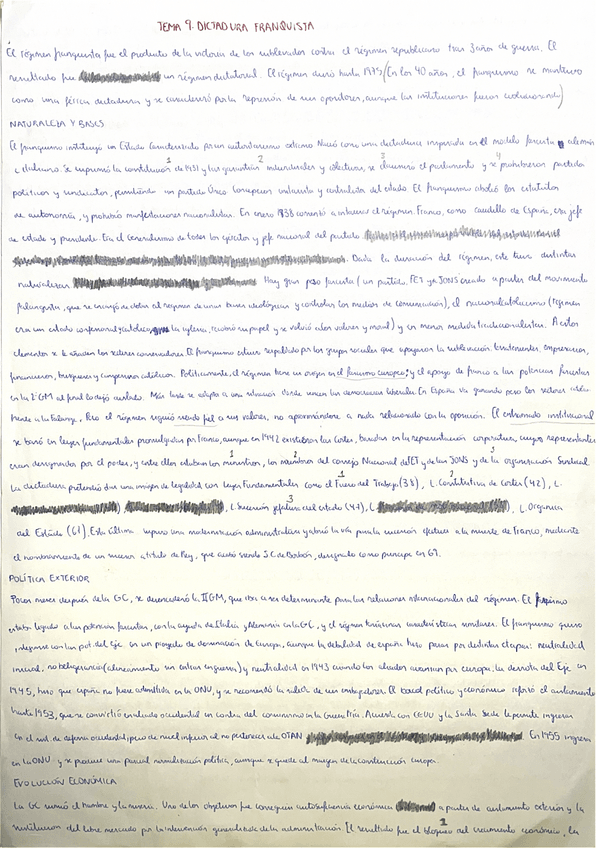 TEMA 9. DICTADURA FRANQUISTA
El régimen franquista fue el producto de la victoria de los sublevados contra el régimen republicano tras 3 años de guerra. El
resultado fue un régimen dictatorial. El régimen duró hasta 1975 (En los 40 años, el franquismo se mantuvo
como una férrea dictadura y se caracterizó por la represión de sus opositores, aunque las instituciones fueron evolucionando)
NATURALEZA Y BASES
El franquismo instituyó un Estado caracterizado por un autoritarismo extremo. Nació como una dictadura inspirada en el modelo fascista alemán
e italiano. Se suprimió la constitución de 1931 y las garantías individuales y colectivas, se disolvió el parlamento y se prohibieron partidos
políticos y sindicatos, permitiendo un partido único y controlados del estado. El franquismo abolió los estatutos
de autonomía, y prohibió manifestaciones nacionalistas. En enero 1938 comenzó a el régimen. Franco, como caudillo de España, era jefe
de estado y presidente. Era el Generalísimo de todos los ejércitos y jefe nacional del partido.
Dada la duración del régimen, este tuvo distintas
Hay gran peso fascista (un partido, FET y JONS creado a partir del movimiento
falangista, que se encargó de dotar al régimen de unas bases ideológicas y controlar los medios de comunicación), el nacionalcatolicismo (régimen
era un estado confesional católico, la iglesia, recibió un papel y se volvió a los valores y moral) y en menor medida tradicionalistas. A estos
elementos se le añaden los valores conservadores. El franquismo estuvo respaldado por los grupos sociales que apoyaron la sublevación: terratenientes, empresarios,
financieros, burgueses y campesinos católicos. Políticamente, el régimen tiene su origen en el fascismo europeo, y el apoyo de Franco a las potencias fascistas
en la 2ªGM al final lo dejó aislado. Más tarde se adapta a una situación donde vencen las democracias liberales. En España va ganando peso los valores católicos
frente a la Falange. Pero el régimen siguió siendo fiel a sus valores, no aproximándose a nada relacionado con la oposición. El entramado institucional
se basó en leyes fundamentales promulgadas por Franco, aunque en 1942 existieron las Cortes, basadas en la representación corporativa, cuyos representantes
eran designados por el poder, y entre ellos estaban los ministros, los miembros del consejo Nacional de FET y de las JONS y de la organización Sindical
La dictadura pretendió dar una imagen de legalidad con Leyes Fundamentales como el Fuero del Trabajo (38), L. Constitutiva de Cortes (42), L.
L. Sucesión jefatura del estado (47), L. L. Orgánica
del Estado (67). Esta última supuso una modernización administrativa y abrió la vía para la sucesión efectiva a la muerte de Franco, mediante
el nombramiento de un sucesor a título de Rey, que acabó siendo J.C de Borbón, designado como príncipe en 69.
POLÍTICA EXTERIOR
Pocos meses después de la GC, se desencadenó la IIGM, que iba a ser determinante para las relaciones internacionales del régimen. El franquismo
estaba ligado a las potencias fascistas, con la ayuda de Italia y Alemania en la GC, y el régimen tenía unas características similares. El franquismo quiso
integrarse con las pot. del Eje en un proyecto de dominación de Europa, aunque la debilidad de españa hizo pasar por distintas etapas: neutralidad
inicial, no beligerancia (alineamiento sin entrar en guerra) y neutralidad en 1943 cuando los aliados avanzan por europa. La derrota del Eje en
1945, hizo que españa no fuera admitida en la ONU, y se recomendó la salida de sus embajadores. El boicot político y económico reforzó el aislamiento
hasta 1953, que se convirtió en aliado occidental en contra del comunismo en la Guerra Fría. Acuerdo con EEUU y la Santa Sede le permite ingresar
en el sist. de defensa occidental, pero de nivel inferior al no pertenecer a la OTAN En 1955 ingresa
en la ONU y se produce una parcial normalización política, aunque se quede al margen de la construcción europea.
EVOLUCIÓN ECONÓMICA
La GC sumió el hambre y la miseria. Uno de los objetivos fue conseguir autosuficiencia económica a partir de aislamiento exterior y la
sustitución del libre mercado por la intervención generalizada de la administración. El resultado fue el bloqueo del crecimiento económico, la